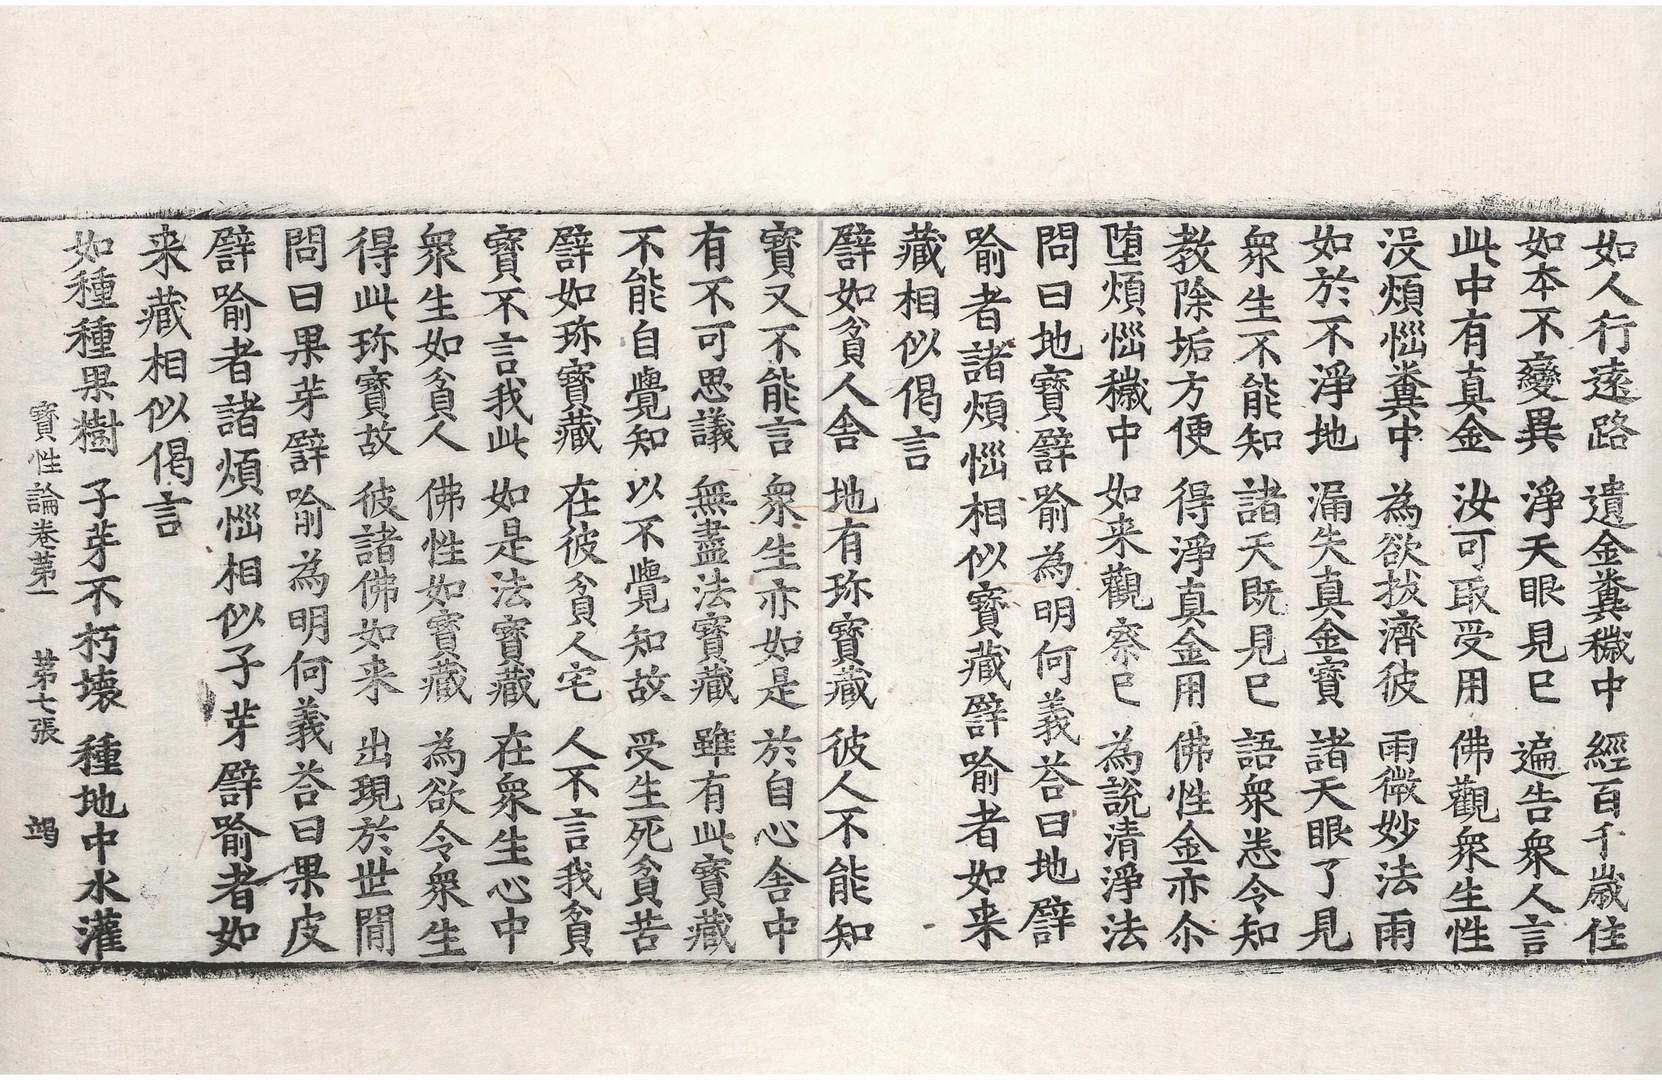 如人行遠路　遺金糞穢中　經百千歲住
如本不變異　淨天眼見巳　遍告衆人言
此中有真金　汝可取受用　佛觀衆生性
沒煩惱糞中　為欲拔濟彼　雨微妙法雨
如於不淨地　漏失真金寳　諸天眼了見
衆生不能知　諸天既見巳　語衆悉令知
教除垢方便　得淨真金用　佛性金亦尒
堕煩惱穢中　如来觀察巳　為說清淨法
問曰地寳譬喻為明何義荅曰地譬
喻者諸煩惱相似寳藏譬喻者如来
藏相似偈言
譬如貧人舎　地有珎寳藏　彼人不能知
寳又不能言　衆生亦如是　於自心舎中
有不可思議　無盡法寳藏　雖有此寳藏
不能自覺知　以不覺知故　受生死貧苦
譬如珎寳藏　在彼貧人宅　人不言我貧
寳不言我此　如是法寳藏　在衆生心中
衆生如貧人　佛性如寳藏　為欲令衆生
得此珎寳故　彼諸佛如来　出現於世間
問曰果芽譬喻為明何義荅曰果皮
譬喻者諸煩惱相似子芽譬喻者如
来藏相似偈言
如種種果樹　子芽不朽壞　種地中水灌
寳性論卷苐一　苐七張　鴻